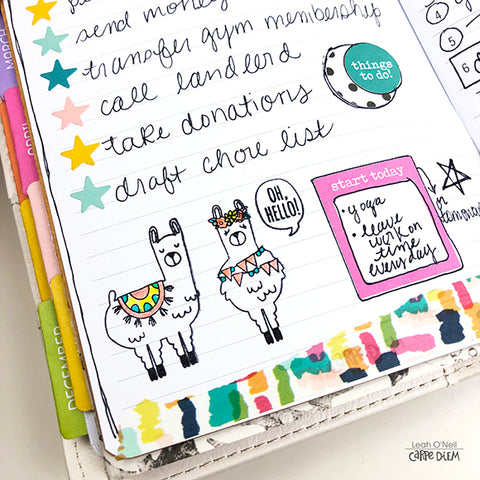 send money
transfer gym membership
call landlord
take donations
draft chore list
things
to do!
OH,
HELLO!
start today
• yoga
• leave
work on
time
everyday
MARCH
APRIL
DECEMBER
④
⑤
⑥
Leah O'Neil
CARPE DIEM